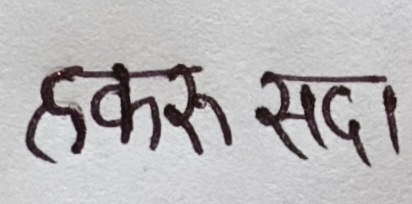 लकरु सदा